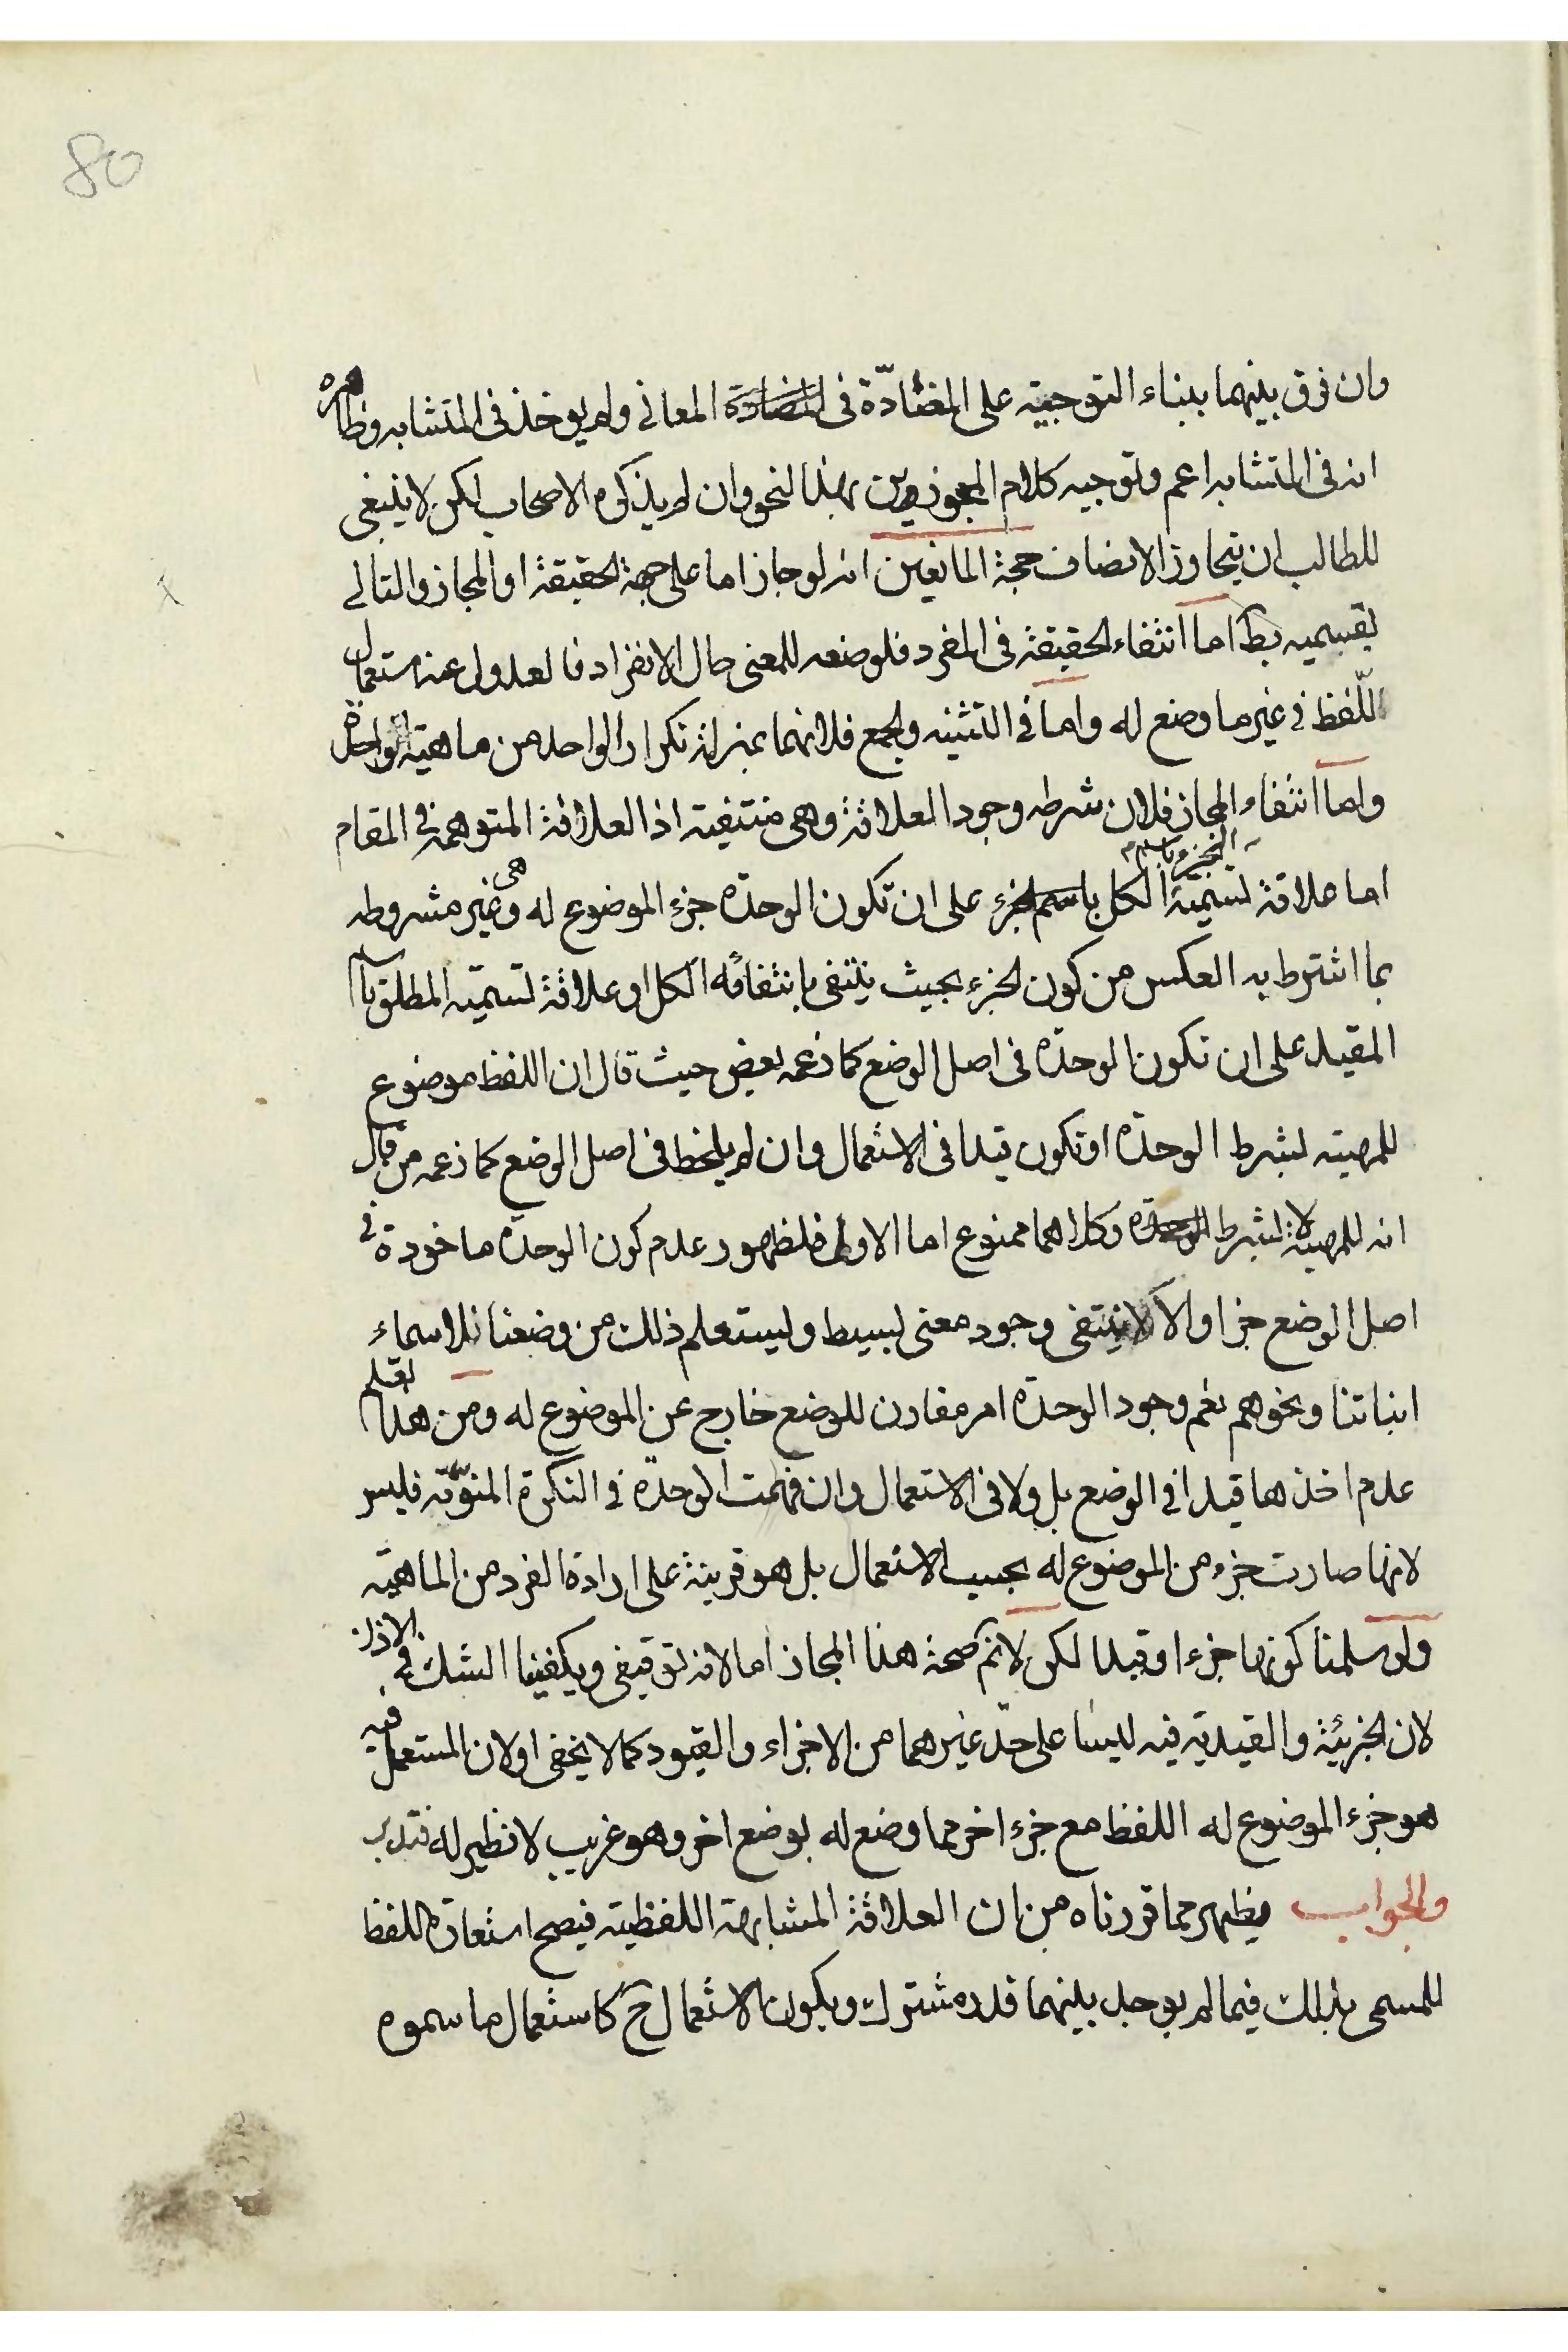 80
وان فرق بينهما ببناء التوجيه على المضادّة فى المعانى ولم يوخذ فى المتشابه وظاهره
انه فى المتشابه اعم وتوجيه كلام المجوزين بهذا النحو وان لم يذكره الاصحاب لكن لا ينبغى
للطالب ان يتجاوز الانصاف حجة المانعين انه لو جاز اما على جهة الحقيقة او المجاز والتالى
بقسميه بط اما انتفاء الحقيقة فى المفرد فلوضعه للمعنى حال الانفراد فالعدول عنه استعمال
اللّفظ فى غير ما وضع له واما فى التثنيه والجمع فلانهما بمنزلة تكرار الواحد من ماهية الواحدة
واما انتفاء المجاز فلان شرطه وجود العلاقة وهى منتفية اذ العلاقة المتوهمة فى المقام
اما علاقة تسمية الكل باسم الجزء على ان تكون الوحدة جزء الموضوع له وهى غير مشروطه
بما اشترط به العكس من كون الجزء بحيث ينتفى بانتفائه الكل او علاقة تسمية المطلق باسم
المقيد على ان تكون الوحدة فى اصل الوضع كما زعمه بعض حيث قال ان اللفظ موضوع
للمهية بشرط الوحدة او تكون قيدا فى الاستعمال وان لم يلحظ فى اصل الوضع كما زعمه من قال
انه للمهية لا بشرط وكلاهما ممنوع اما الاولى فلظهور عدم كون الوحدة ماخوذة فى
اصل الوضع جزا والا لا ينتفى وجود معنى بسيط وليستعلم ذلك من وضعنا للاسماء
ابنائنا ونحوهم نعم وجود الوحدة امر مقارن للوضع خارج عن الموضوع له ومن هذا تعلم
عدم اخذها قيدا فى الوضع بل ولا فى الاستعمال وان فهمت الوحدة فى النكرة المنوّنة فليس
لانها صارت جزء من الموضوع له بحسب الاستعمال بل هو قرينة على ارادة الفرد من الماهية
ولو سلمنا كونها جزءا او قيدا لكن لا نم صحة هذا المجاز اما لانه توقيفى ويكفينا الشك فى الاذن
لان الجزئية والقيدية فيه ليسا على حدّ غيرهما من الاجزاء والقيود كما لا يخفى او لان المستعمل فيه
هو جزء الموضوع له اللفظ مع جزء اخر مما وضع له بوضع اخر وهو غريب لا نظير له فتدبر
والجواب يظهر مما قررناه من ان العلاقة المشابهة اللفظية فيصح استعارة اللفظ
للمسمى بذلك فيما لم يوجد بينهما قدر مشترك ويكون الاستعمال ح كاستعمال ما سموه